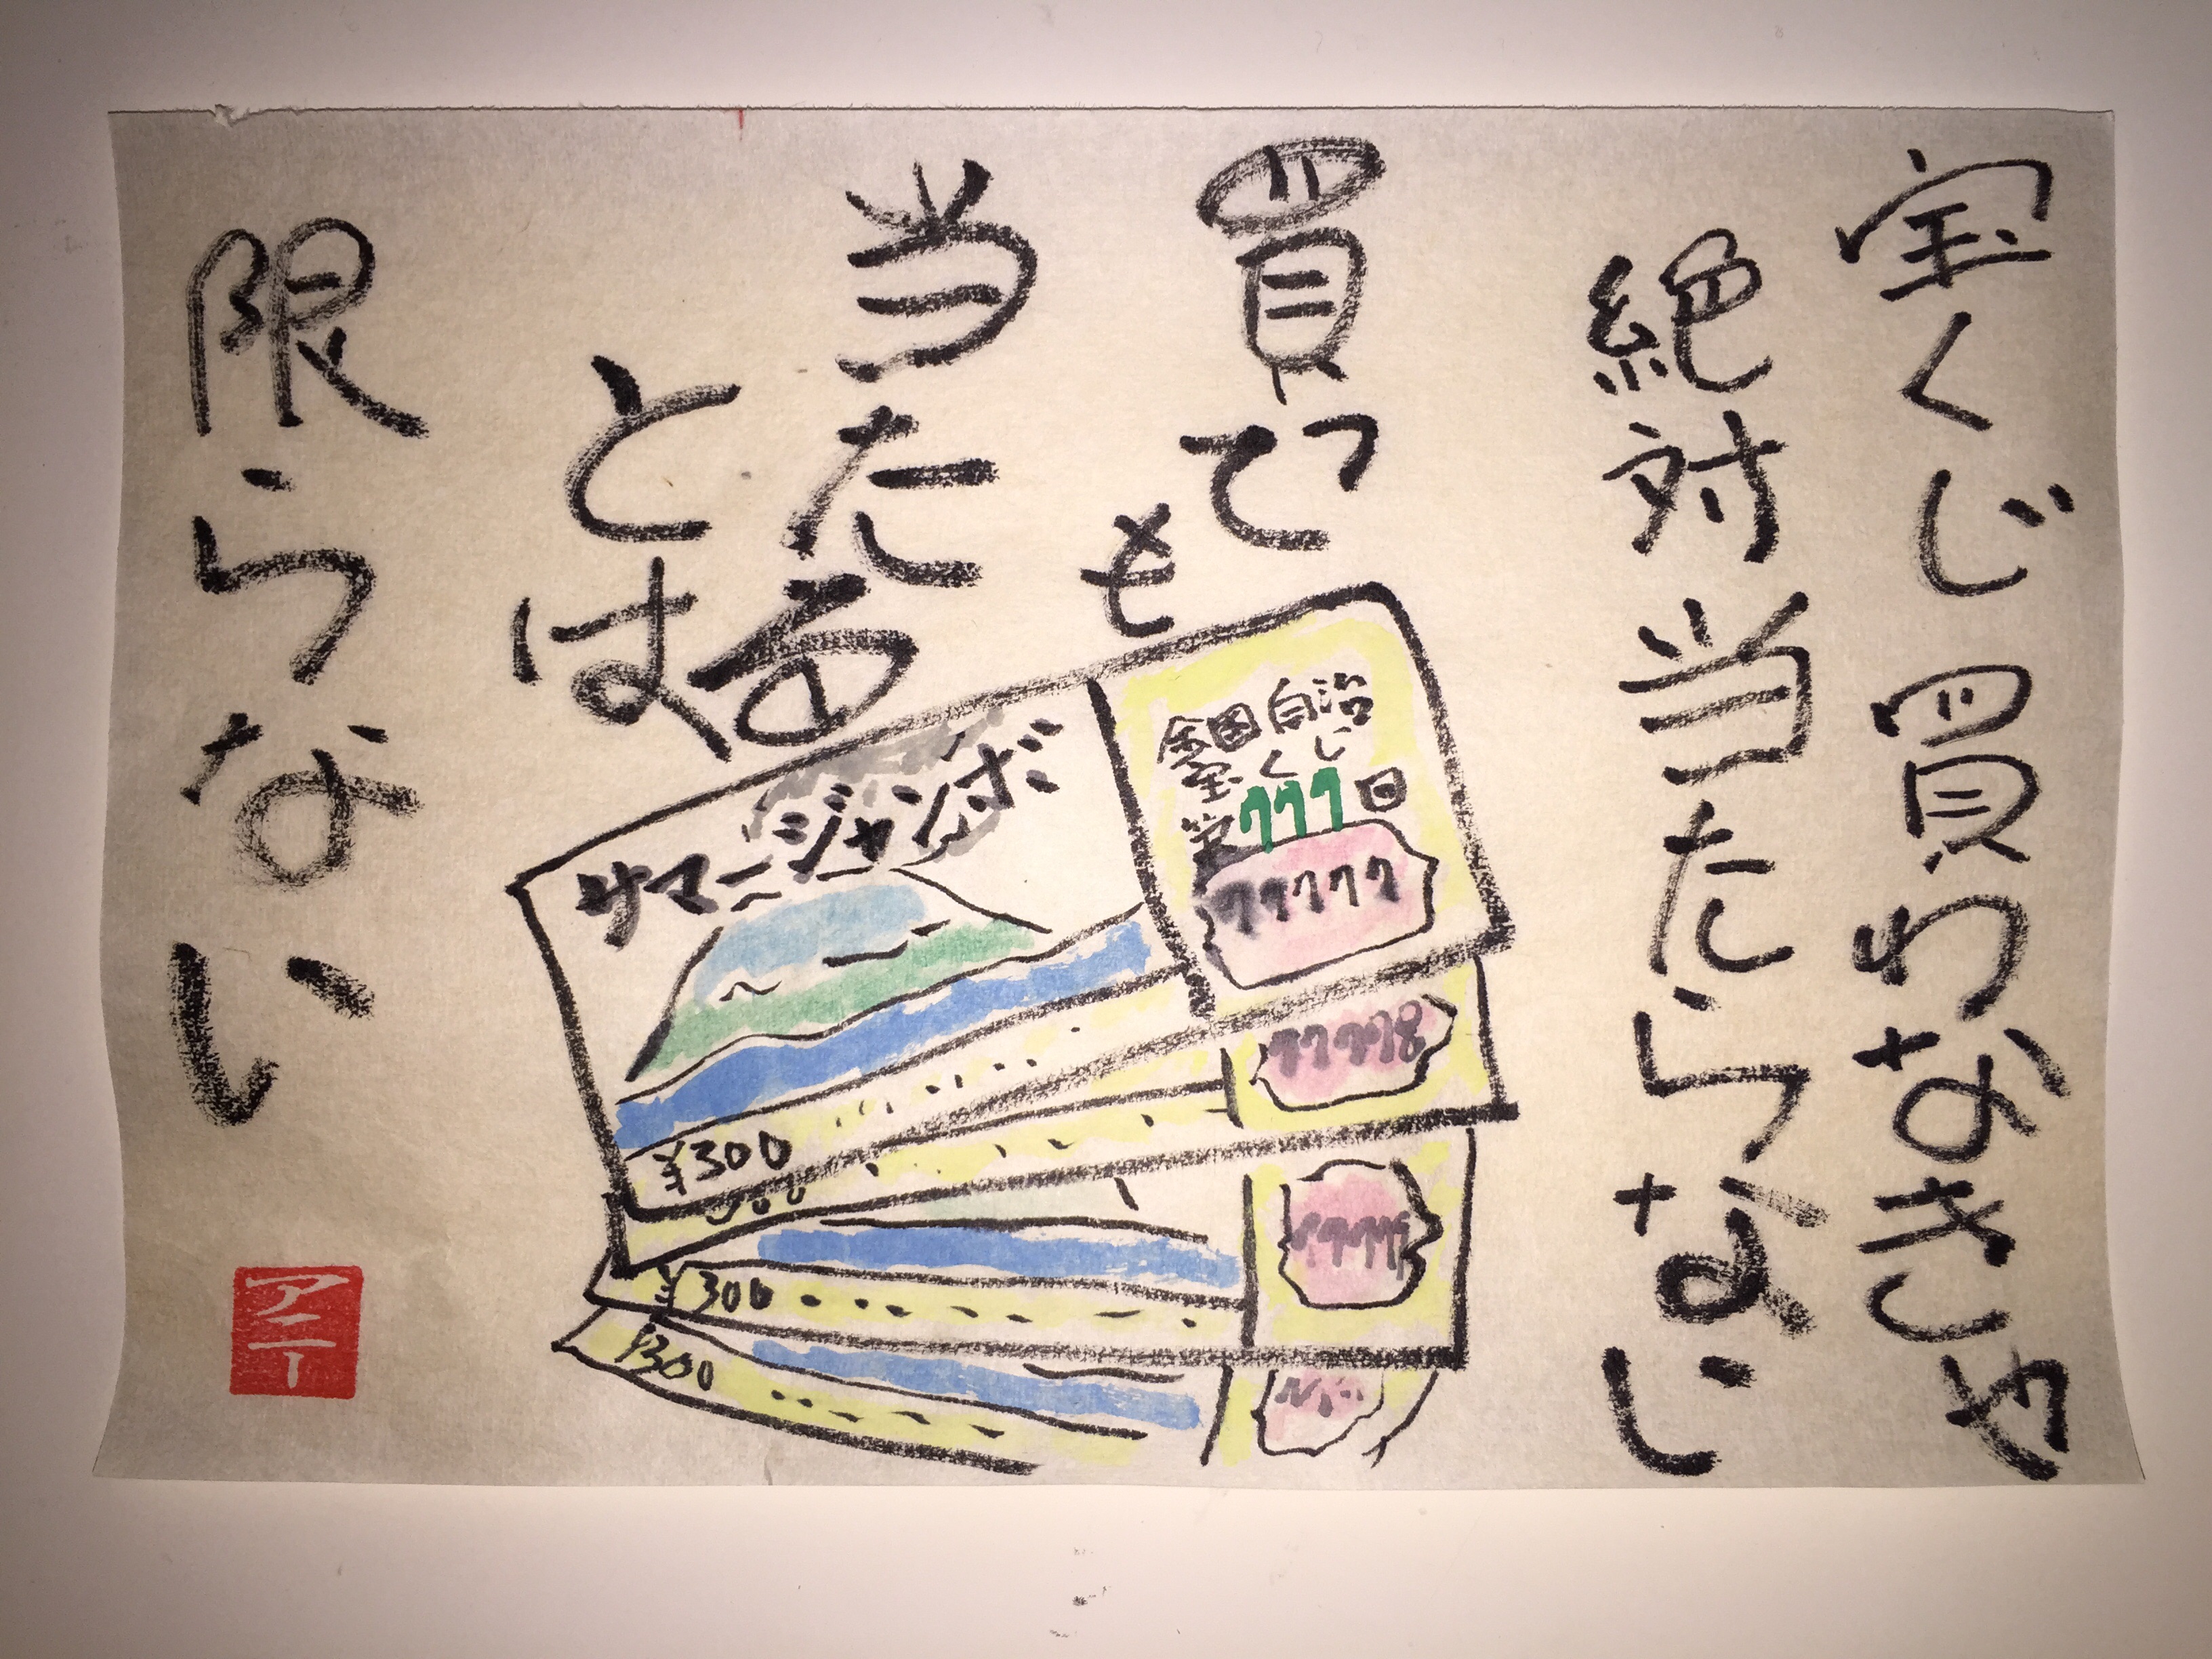 宝くじ買わなきゃ
絶対当たらない
買っても
当たる
とは
限らない
全国自治
宝くじ
第777回
77777
サマージャンボ
¥300
¥300
¥300
アニー